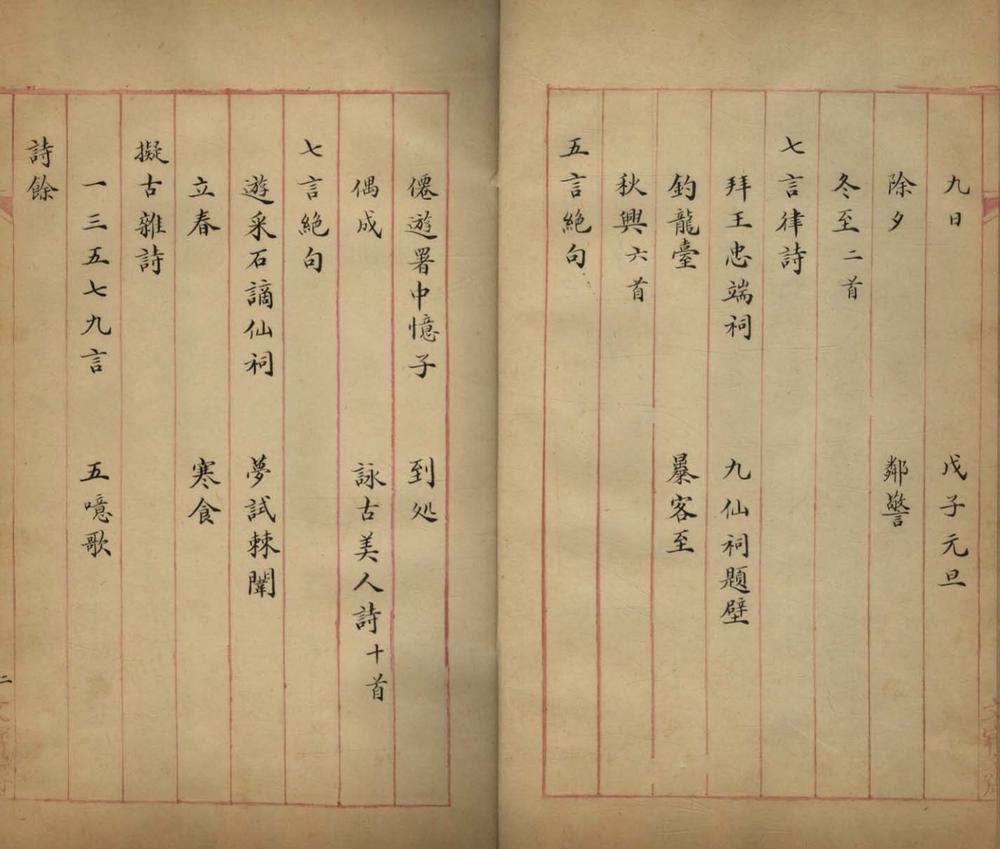 九日　戊子元旦
除夕　鄰警
冬至二首
七言律詩
拜王忠端祠　九仙祠題壁
釣龍臺　暴客至
秋興六首
五言絕句
僊遊署中憶子　到処
偶成　詠古美人詩十首
七言絕句
遊采石謫仙祠　夢試棘闈
立春　寒食
擬古雜詩
一三五七九言　五噫歌
詩餘
二